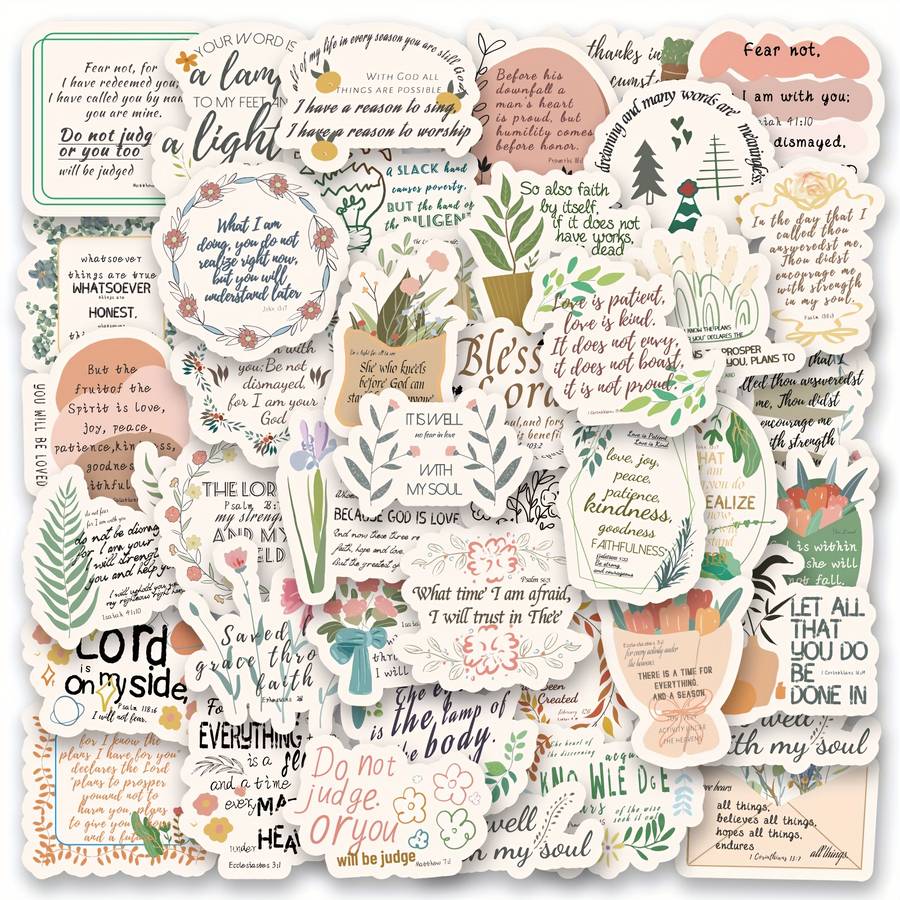 Fear not, for
I have redeemed you;
I have called you by nam
you are mine.
Do not judg
or you too
will be judged
YOUR WORD IS
a lamp
TO MY FEET AN
a light
all of my life in every season you are still God
WITH GOD ALL
THINGS ARE POSSIBLE
I have a reason to sing,
I have a reason to worship
Before his
downfall a
man's heart
is proud, but
humility comes
before honor.
thanks in
cumst
Fear not,
I am with you;
iah 41:10
dismayed,
dreaming and many words are meaningless.
A SLACK hand
causes poverty,
BUT the hand of
the DILIGEN
So also faith
by itself,
if it does not
have works,
dead
What I am
doing, you do not
realize right now,
but you will
understand later
John 13:7
In the day that I
called thou
answeredst me,
Thou didst
encourage me
with strength
in my soul.
Psalm 138:3
whatsoever
things are true
WHATSOEVER
things are
HONEST,
Love is patient,
love is kind.
It does not envy,
it does not boast,
it is not proud.
KNOW THE PLANS
YOU" DECLARES THE
PROSPER
YOU, PLANS TO
But the
fruitof the
Spirit is love,
joy, peace,
patience,kindness,
goodnes
ithful
YOU WILL BE LOVED
n with
you;Be not
dismayed,
for I am your
God
She who kneels
before God can
Bless
Lord
that I
lled thou answeredst
me, Thou didst
encourage me
th strength
IT IS WELL
no fear in love
WITH
MY SOUL
Love is Patient,
Love is Kind
love, joy,
peace,
patience,
kindness,
goodness
FAITHFULNESS"
Galatians 5:22
Be strong
and courageous
HAT
you do
EALIZE
now,
THE LOR
Psalm 28:7
my streng
AND MY
ELD
do not fear
for I am with you
do not be dismay
for I am your
I will strengt
you and help yo
I will uphold you
my righteous right han
Isaiah 41:10
BECAUSE GOD IS LOVE
And now these three re
faith, hope and love.
But the greatest of
d is within
she will
not fall,
Psalm 56:3
What time' I am afraid,
I will trust in Thee'
Saved
grace thro
faith
Lord
is
on my side,
Psalm 118:6
I will not fear.
I will
Ecclesiastes 3:1
for every activity under
the heavens.
THERE IS A TIME FOR
EVERYTHING.
AND A SEASON
ACTIVITY UNDER
THE HEAVENS
LET ALL
THAT
YOU DO
BE
DONE IN
1 Corinthians 16:14
The eye
is the lamp of
the body.
Been
Created
well
th my soul
For
EVERYTHING
is a
and a time
every MA-
under HEA
Ecclesiastes 3:1
for I know the
plans I have for you"
declares the Lord
"plans to prosper
youand not to
harm you, plans
to give you
and a futu
Do not
judge.
Or you
will be judge
Matthew 7:2
The heart of
the discerning
acqu
KNOWLEDGE
ears of the wise
seek it out
well
h my soul
bears
all things,
believes all things,
hopes all things,
endures
all things.
1 Corinthians 13:7